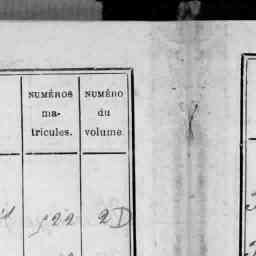 NUMÉROS
ma-
tricules.
NUMÉRO
du
volume
922 2D